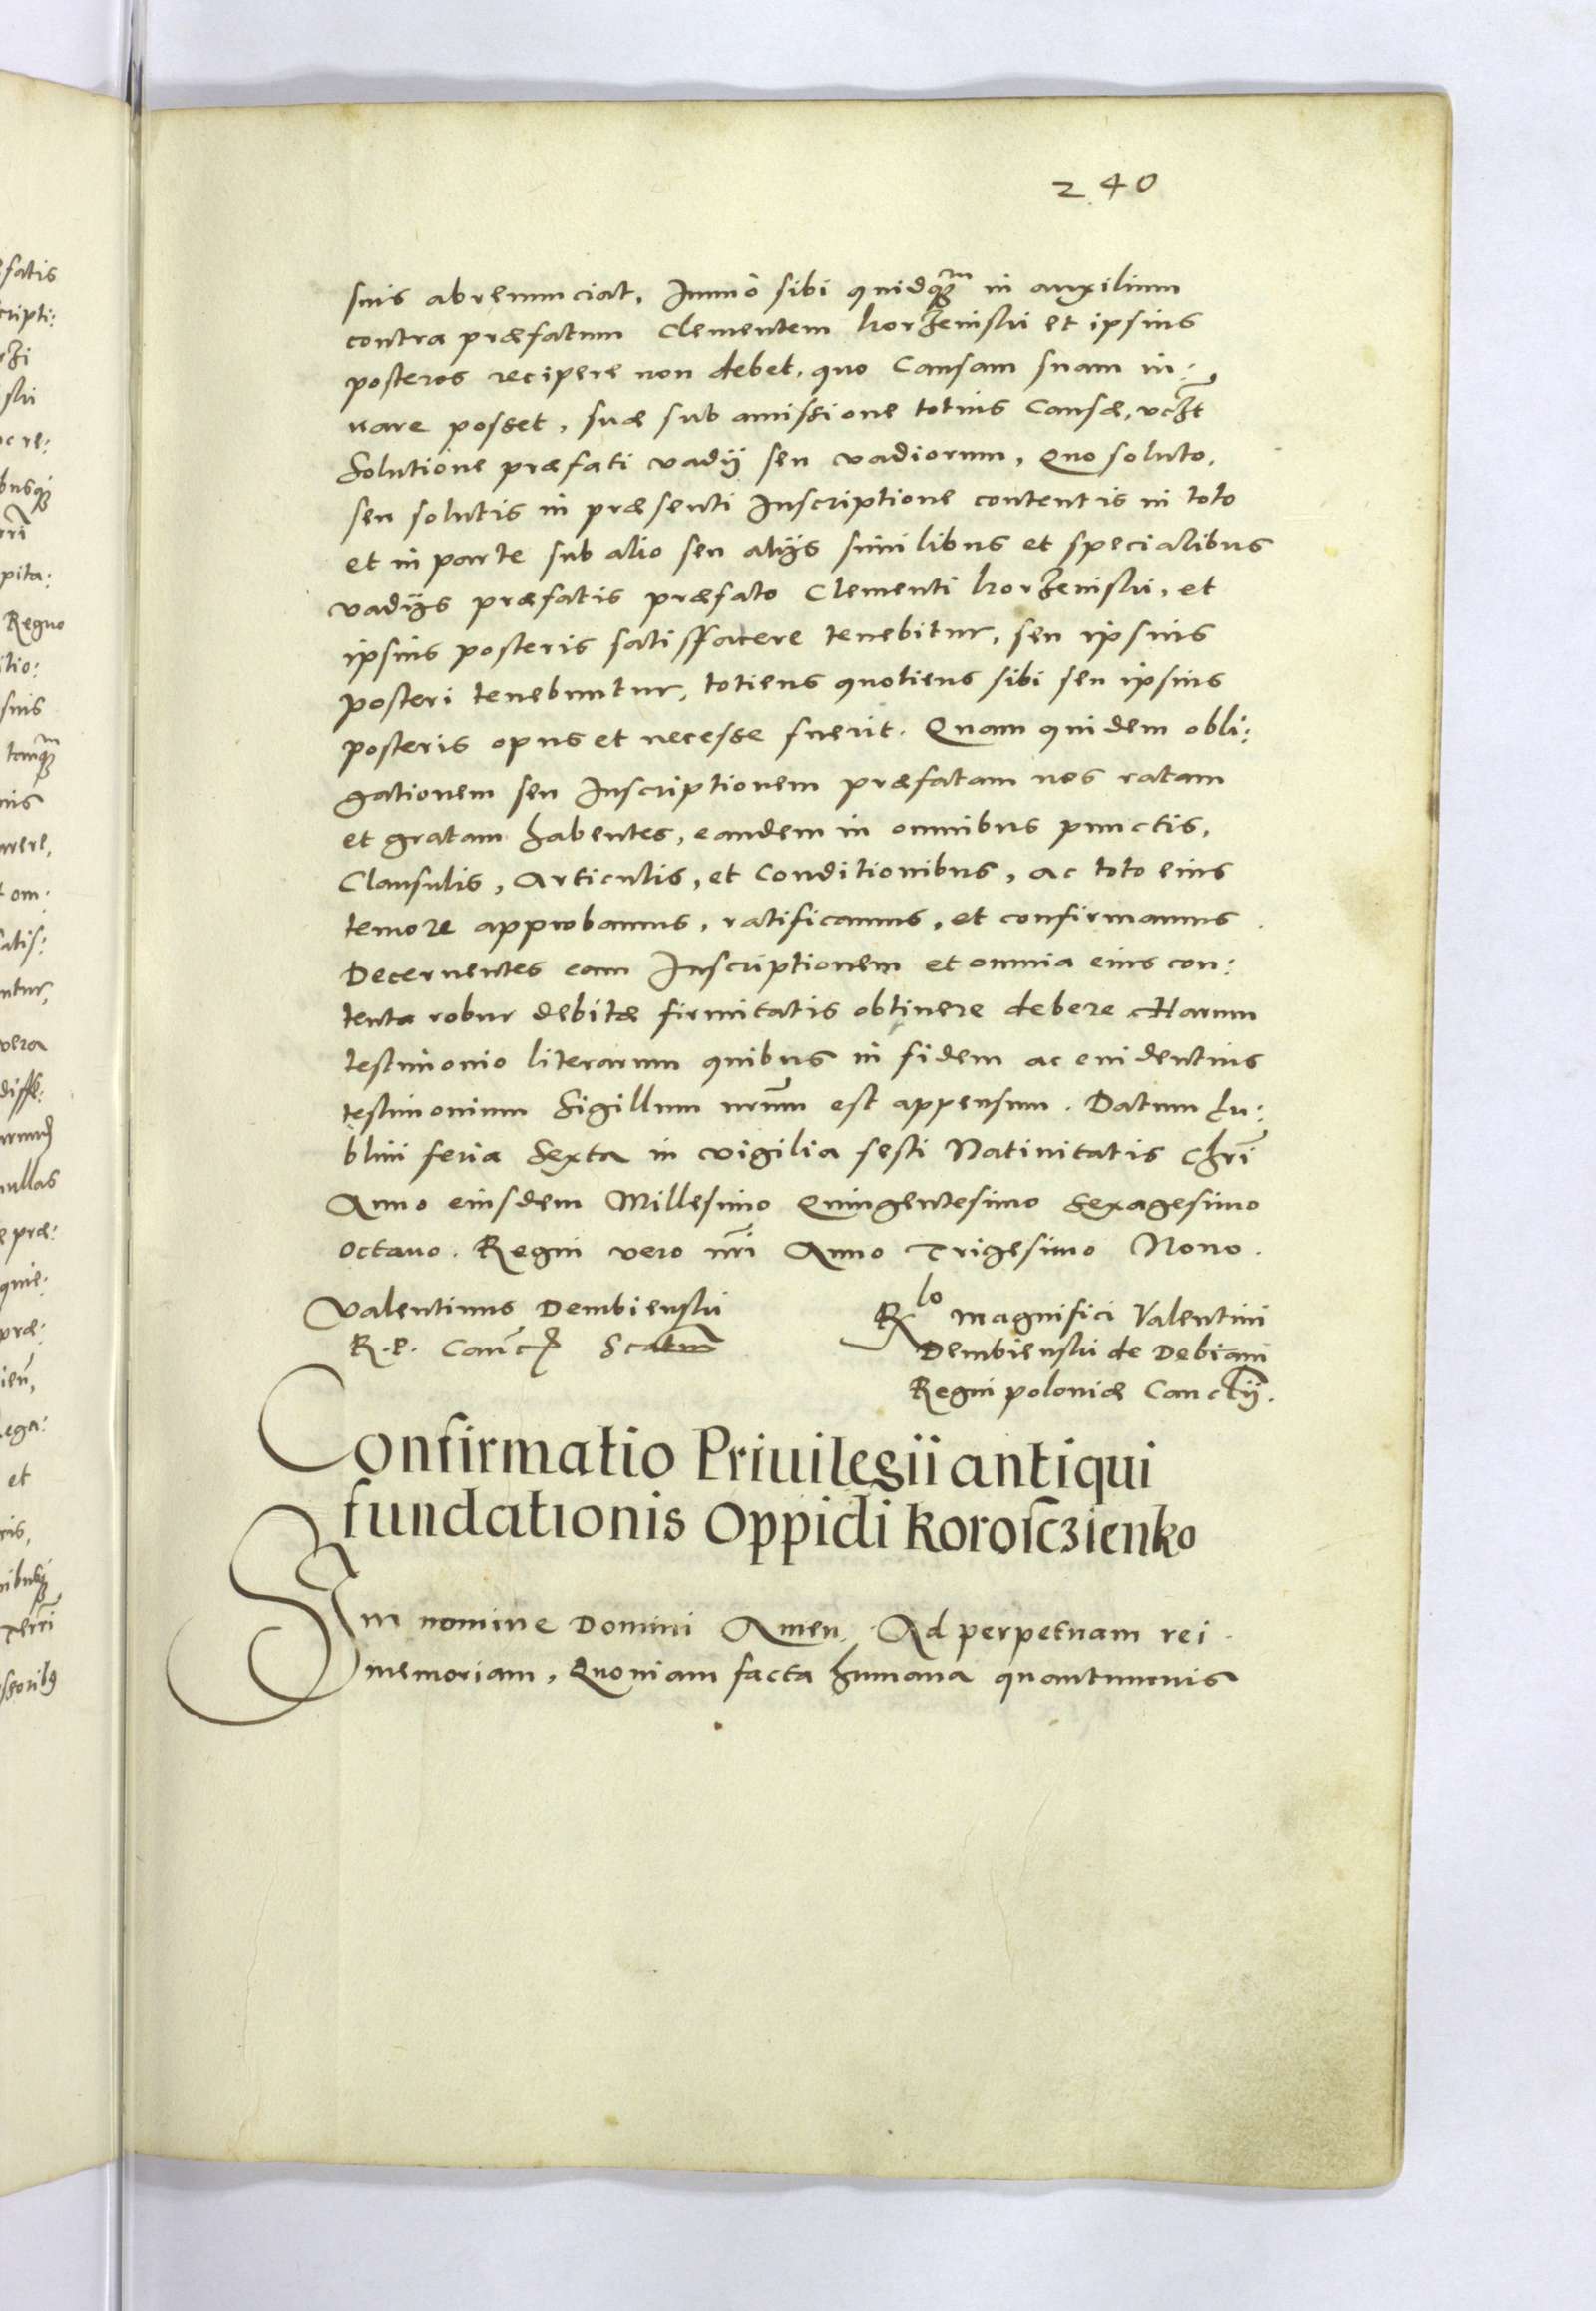 240
suis abrenunciat, Immo sibi quidq̃m in auxilium
contra præfatum Clementem korzeniski et ipsius
posteros recipere non debet, quo Causam suam iu:
uare posset, suæ sub amissione totius Causæ, vczt
Solutione præfati vadij seu vadiorum, Quo soluto,
seu solutis in præsenti Inscriptione contentis in toto
et in parte sub alio seu alijs similibus et specialibus
vadijs præfatis præfato Clementi korzeniski, et
ipsius posteris satisffacere tenebitur, seu ipsius
posteri tenebuntur, totiens quotiens sibi seu ipsius
posteris opus et necesse fuerit. Quam quidem obli:
gationem seu Inscriptionem præfatam nos ratam
et gratam habentes, eandem in omnibus punctis,
Clausulis, Articulis, et Conditionibus, ac toto eius
tenore approbamus, ratificamus, et confirmamus
Decernentes eam Inscriptionem et omnia eius con:
tenta robur debitæ firmitatis obtinere debere Harum
testimonio literarum quibus in fidem ac euidentius
testimonium Sigillum nr̃um est appensum. Datum Lu:
blini feria Sexta in vigilia festi Natiuitatis Chr̃i
Anno eiusdem Millesimo Quingentesimo Sexagesimo
octauo. Regni vero nr̃i Anno Trigesimo Nono.
Valentinus Dembienski
R. P. Canc
Rlo magnifici Valentini
Dembienski de Debiani
Regni poloniæ Cancrij.
Confirmatio Priuilegii antiqui
fundationis Oppidi Korosczienko
In nomine Domini Amen. Ad perpetuam rei
memoriam, Quoniam facta humana quantumuis